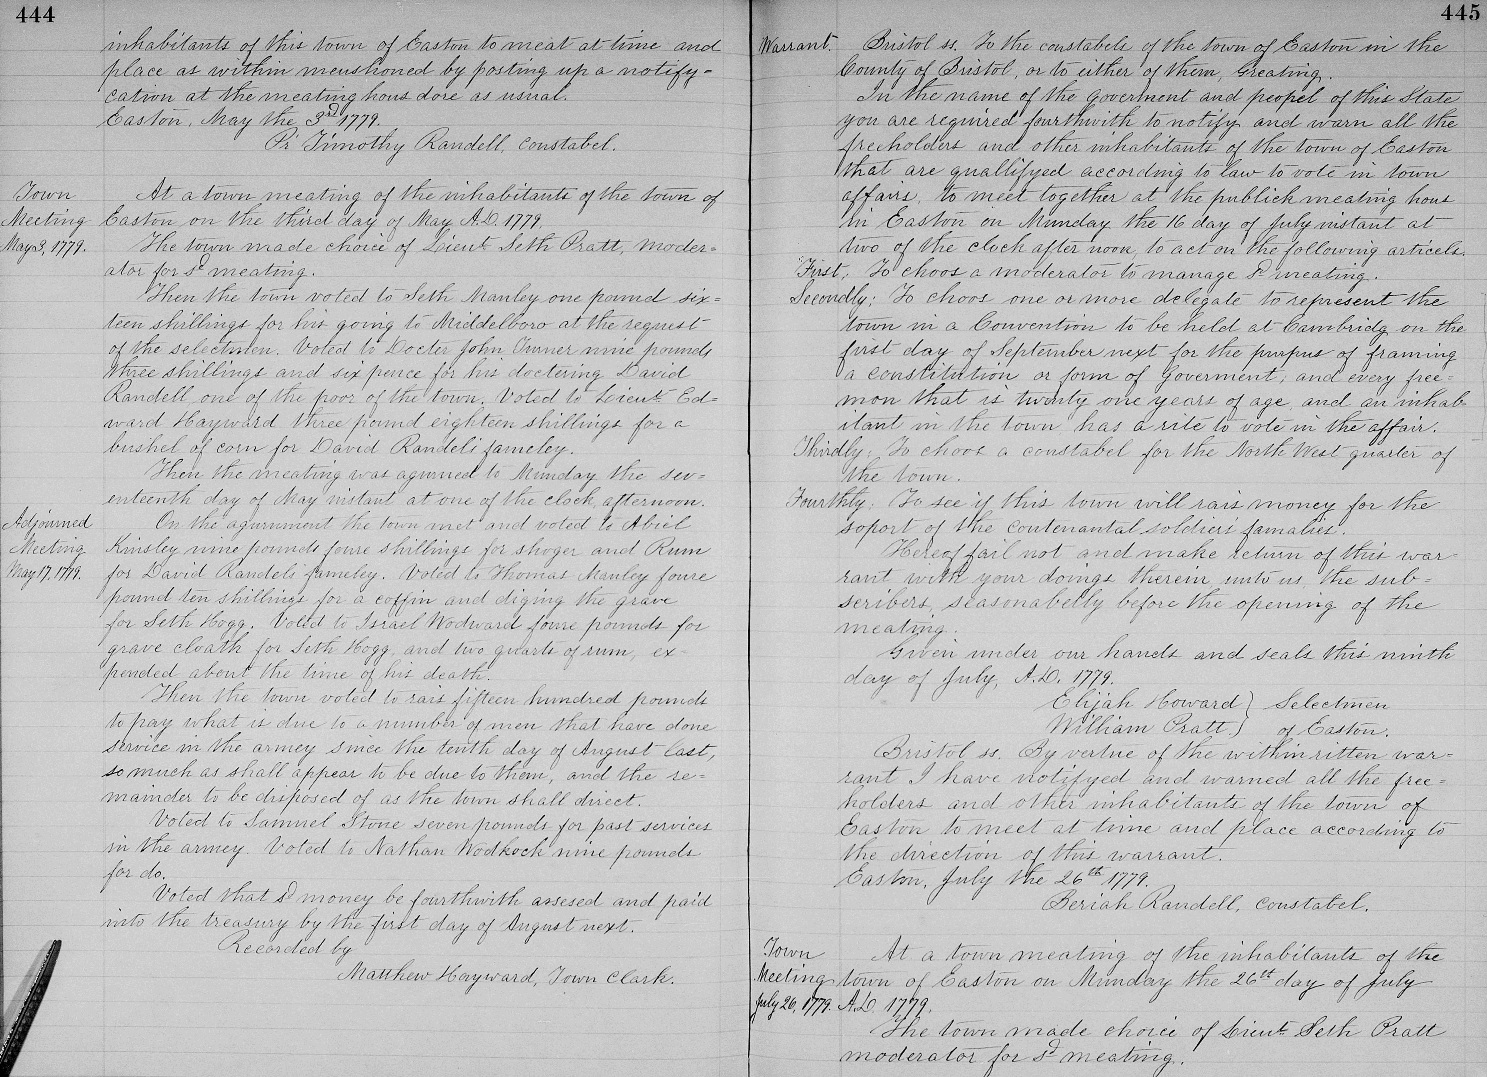 444
inhabitants of this town of Easton to meat at time and
place as within menshoned by posting up a notify=
cation at the meating hous dore as usual.
Easton, May the 3rd 1779.
Pr Timothy Randell, constabel.
Town
Meeting
May 3, 1779.
At a town meating of the inhabitants of the town of
Easton on the third day of May A.D. 1779.
The town made choice of Lieut Seth Pratt, moder=
ator for sd meating.
Then the town voted to Seth Manley one pound six=
teen shillings for his going to Middelboro at the request
of the selectmen. Voted to Docter John Turner nine pounds
three shillings and six pence for his doctering David
Randell one of the poor of the town. Voted to Lieut Ed=
ward Hayward three pound eighteen shillings for a
bushel of corn for David Randels fameley.
Then the meating was agurned to Munday the sev=
enteenth day of May instant at one of the clock afternoon.
Adjourned
Meeting
May 17, 1779.
On the agurnment the town met and voted to Abiel
Kinsley nine pounds foure shillings for shoger and Rum
for David Randels fameley. Voted to Thomas Manley foure
pound ten shillings for a coffin and diging the grave
for Seth Hogg. Voted to Israel Wodward foure pounds for
grave cloath for Seth Hogg, and two quarts of rum, ex=
pended about the time of his death.
Then the town voted to rais fifteen hundred pounds
to pay what is due to a number of men that have done
service in the armey since the tenth day of August last,
so much as shall appear to be due to them, and the re=
mainder to be disposed of as the town shall direct.
Voted to Samuel Stone seven pounds for past services
in the armey. Voted to Nathan Wodkock nine pounds
for do.
Voted that sd money be fourthwith assesed and paid
into the treasury by the first day of August next.
Recorded by
Matthew Hayward, Town Clark.
445
Warrant.
Bristol ss. To the constabels of the town of Easton in the
County of Bristol, or to either of them, Greating.
In the name of the Goverment and peopel of this State
you are required fourthwith to notify and warn all the
freeholders and other inhabitants of the town of Easton
that are quallifyed according to law to vote in town
affairs, to meet together at the publick meating hous
in Easton on Munday the 16 day of July instant at
two of the clock after noon, to act on the following articels.
First; To choos a moderator to manage sd meating.
Secondly; To choos one or more delegate to represent the
town in a Convention to be held at Cambridg on the
first day of September next for the purpus of framing
a constitution or form of Goverment; and every free=
mon that is twenty one years of age and an inhab=
itant in the town has a rite to vote in the affair.
Thirdly; To choos a constabel for the North West quarter of
the town.
Fourthly; To see if this town will rais money for the
soport of the contenantal soldiers famalies.
Hereof fail not and make return of this war=
rant with your doings therein unto us, the sub=
scribers, seasonabelly before the opening of the
meating.
Given under our hands and seals this ninth
day of July, A.D. 1779.
Elijah Howard } Selectmen
William Pratt } of Easton.
Bristol ss. By vertue of the within ritten war=
rant I have notifyed and warned all the free=
holders and other inhabitants of the town of
Easton to meet at time and place according to
the direction of this warrant.
Easton, July the 26th 1779.
Beriah Randell, constabel.
Town
Meeting
July 26, 1779.
At a town meating of the inhabitants of the
town of Easton on Munday the 26th day of July
A.D. 1779.
The town made choice of Lieut Seth Pratt
moderator for sd meating.